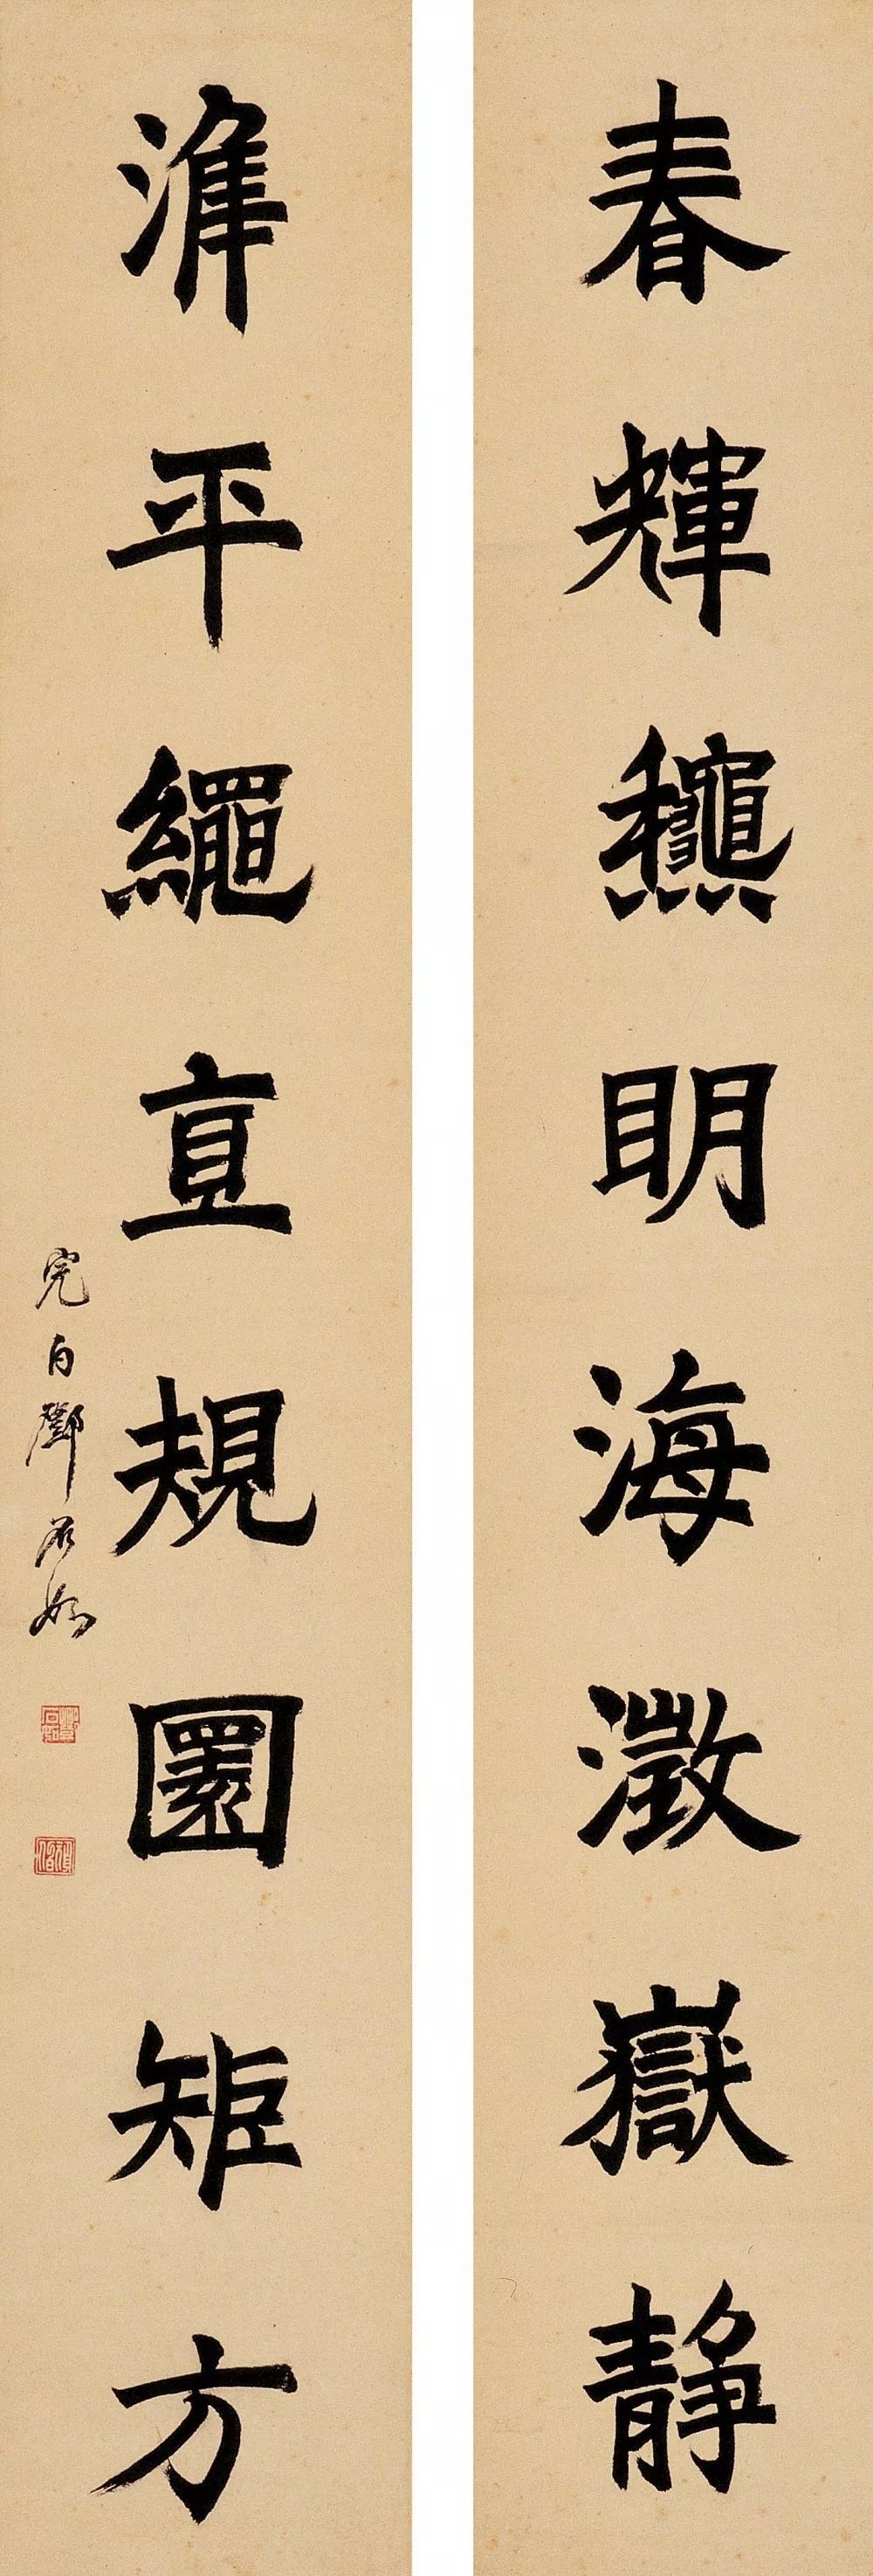 春輝龝明海澂嶽静
準平繩直規圓矩方
完白鄧石如